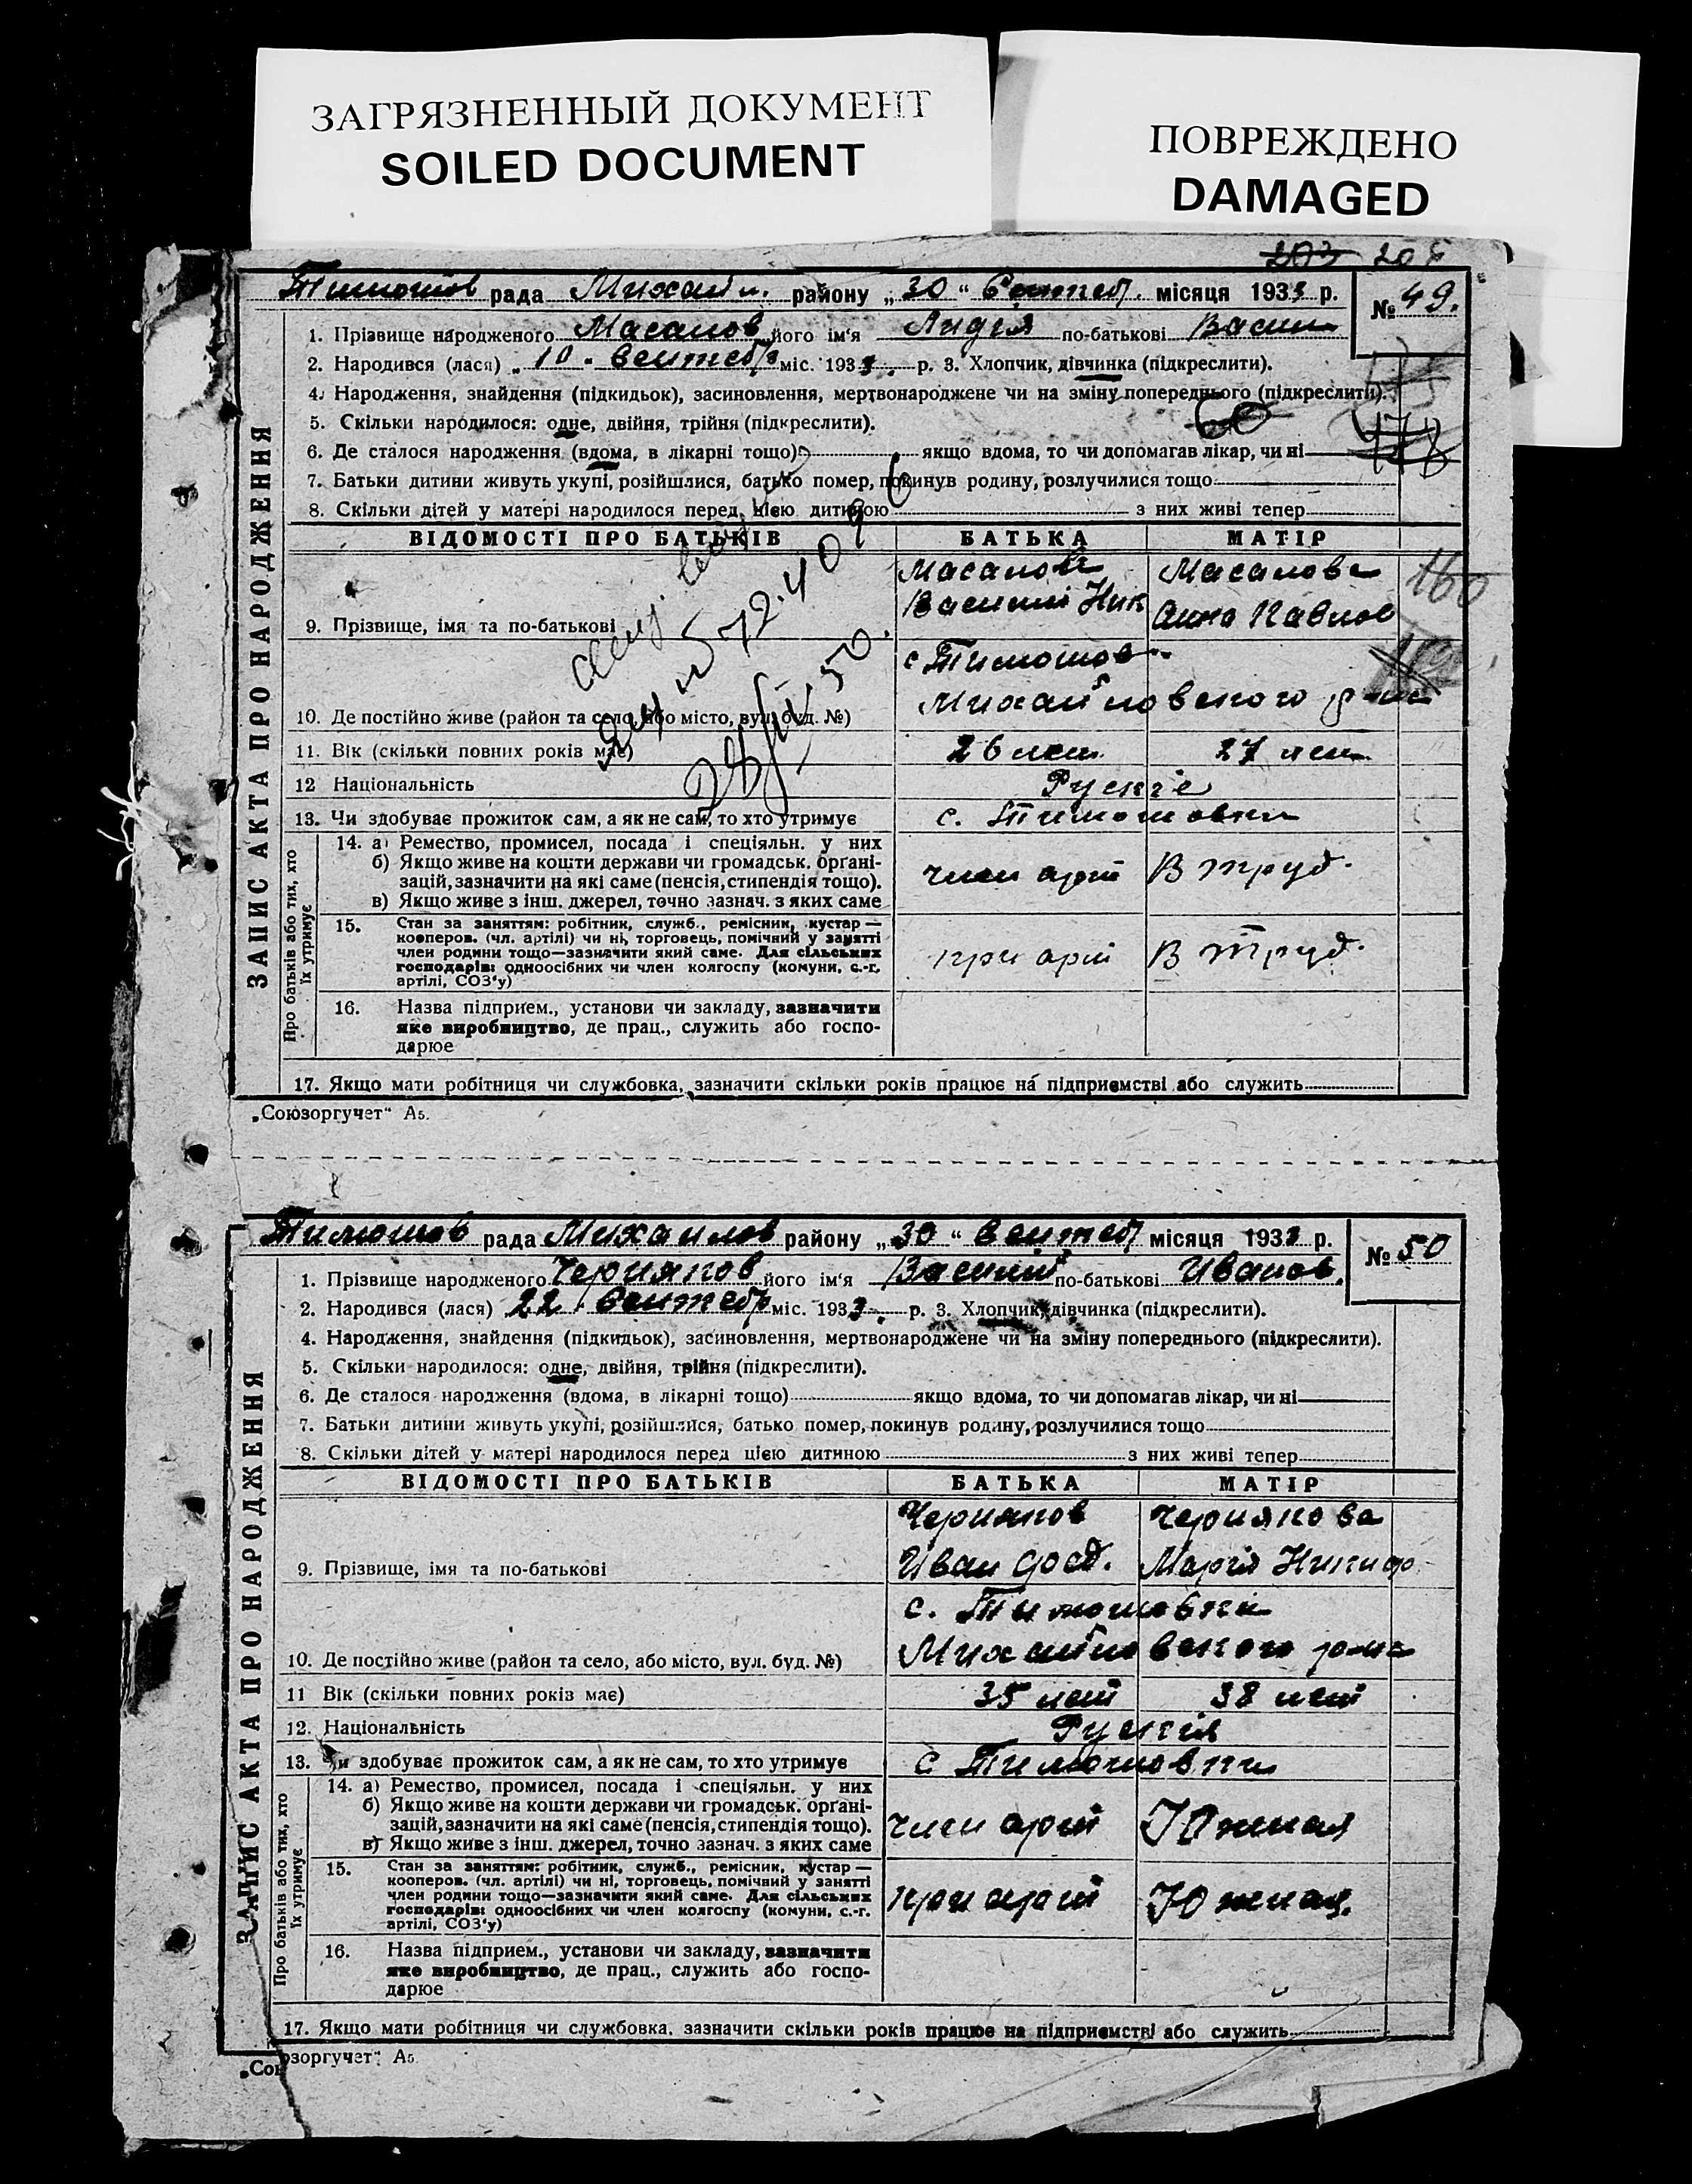 ЗАГРЯЗНЕННЫЙ ДОКУМЕНТ
SOILED DOCUMENT
ПОВРЕЖДЕНО
DAMAGED
203
Тимошов рада Михайл. району „30“ Сентеб. місяця 1933 р.
№ 49.
1. Прізвище народженого Масалов його ім'я по-батькові Васил
2. Народився (лася) „10“ Сентеб міс. 1933 р. 3. Хлопчик, дівчинка (підкреслити).
4. Народження, знайдення (підкидьок), засиновлення, мертвонароджене чи на зміну попереднього (підкреслити).
5. Скільки народилося: одне, двійня, трійня (підкреслити).
60
6. Де сталося народження (вдома, в лікарні тощо) якщо вдома, то чи допомагав лікар, чи ні
7. Батьки дитини живуть укупі, розійшлися, батько помер, покинув родину, розлучилися тощо
8. Скільки дітей у матері народилося перед цією дитиною з них живі тепер
ЗАПИС АКТА ПРО НАРОДЖЕННЯ
ВІДОМОСТІ ПРО БАТЬКІВ БАТЬКА МАТІР
Масалов Масалова
Василий Ник Анна Павлов
160
9. Прізвище, імя та по-батькові
с Тимошов
Михайловского
10. Де постійно живе (район та село, або місто, вул. буд. №)
11. Вік (скільки повних років має) 26 лет 27 лет
12 Національність Рускіе
13. Чи здобуває прожиток сам, а як не сам, то хто утримує с. Тимошовки
Про батьків або тих, хто їх утримує
14. а) Ремество, промисел, посада і спеціяльн. у них
б) Якщо живе на кошти держави чи громадськ. органі-
зацій, зазначити на які саме (пенсія, стипендія тощо).
в) Якщо живе з інш. джерел, точно зазнач. з яких саме
член арт В труд.
15. Стан за заняттям: робітник, служб., ремісник, кустар —
кооперов. (чл. артілі) чи ні, торговець, помічний у занятті
член родини тощо—зазначити який саме. Для сільських
господарів: одноосібних чи член колгоспу (комуни, с.-г.
артілі, СОЗ'у)
при арт В труд.
16. Назва підприєм., установи чи закладу, зазначити
яке виробництво, де прац., служить або госпо-
дарює
17. Якщо мати робітниця чи службовка, зазначити скільки років працює на підприємстві або служить
„Союзоргучет“ А5.
Тимошов рада Михаилов району „30“ Сентеб місяця 1933 р.
№ 50
1. Прізвище народженого Черняков його ім'я Василий по-батькові Иванов.
2. Народився (лася) 22 Сентеб міс. 1933 р. 3. Хлопчик, дівчинка (підкреслити).
4. Народження, знайдення (підкидьок), засиновлення, мертвонароджене чи на зміну попереднього (підкреслити).
5. Скільки народилося: одне, двійня, трійня (підкреслити).
6. Де сталося народження (вдома, в лікарні тощо) якщо вдома, то чи допомагав лікар, чи ні
7. Батьки дитини живуть укупі, розійшлися, батько помер, покинув родину, розлучилися тощо
8. Скільки дітей у матері народилося перед цією дитиною з них живі тепер
ЗАПИС АКТА ПРО НАРОДЖЕННЯ
ВІДОМОСТІ ПРО БАТЬКІВ БАТЬКА МАТІР
Черняков Чернякова
9. Прізвище, імя та по-батькові Иван Фоед. Марія Никифо
с. Тимошовки
Михайловского
10. Де постійно живе (район та село, або місто, вул. буд. №)
11 Вік (скільки повних років має) 35 лет 38 лет
12. Національність Рускія
13. Чи здобуває прожиток сам, а як не сам, то хто утримує с Тимошовки
Про батьків або тих, хто їх утримує
14. а) Ремество, промисел, посада і спеціяльн. у них
б) Якщо живе на кошти держави чи громадськ. органі-
зацій, зазначити на які саме (пенсія, стипендія тощо).
в) Якщо живе з інш. джерел, точно зазнач. з яких саме
член арт Южная
15. Стан за заняттям: робітник, служб., ремісник, кустар —
кооперов. (чл. артілі) чи ні, торговець, помічний у занятті
член родини тощо—зазначити який саме. Для сільських
господарів: одноосібних чи член колгоспу (комуни, с.-г.
артілі, СОЗ'у)
при арт Южная
16. Назва підприєм., установи чи закладу, зазначити
яке виробництво, де прац., служить або госпо-
дарює
17. Якщо мати робітниця чи службовка, зазначити скільки років працює на підприємстві або служить
„Союзоргучет“ А5